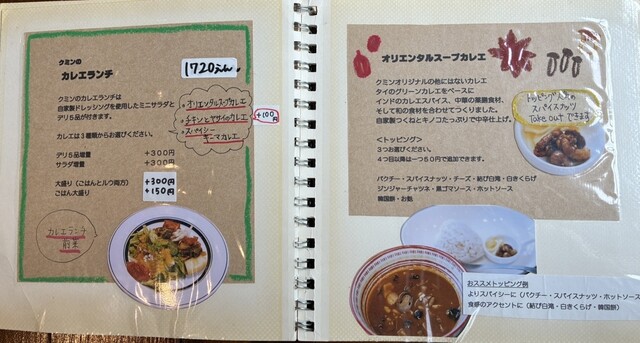 クミンの
カレエランチ
1720えん
クミンのカレエランチは
自家製ドレッシングを使用したミニサラダと
デリ5品が付きます。
カレエは3種類からお選びください。
・オリエンタルスープカレエ
・チキンとヤサイのカレエ
・スパイシー
キーマカレエ
+100円
デリ5品増量 +300円
サラダ増量 +300円
大盛り(ごはんとルウ両方) +300円
ごはん大盛り +150円
カレエランチ
前菜
オリエンタルスープカレエ
クミンオリジナルの他にはないカレエ
タイのグリーンカレエをベースに
インドのカレエスパイス、中華の薬膳食材、
そして和の食材を合わせてつくりました。
自家製つくねとキノコたっぷりで中辛仕上げ。
<トッピング>
3つお選びください。
4つ目以降は一つ50円で追加できます。
パクチー・スパイスナッツ・チーズ・結び白滝・白きくらげ
ジンジャーチャツネ・黒ゴマソース・ホットソース
韓国餅・お麩
トッピング人気の
スパイスナッツ
Take out できます
おススメトッピング例
よりスパイシーに(パクチー・スパイスナッツ・ホットソース
食感のアクセントに(結び白滝・白きくらげ・韓国餅)